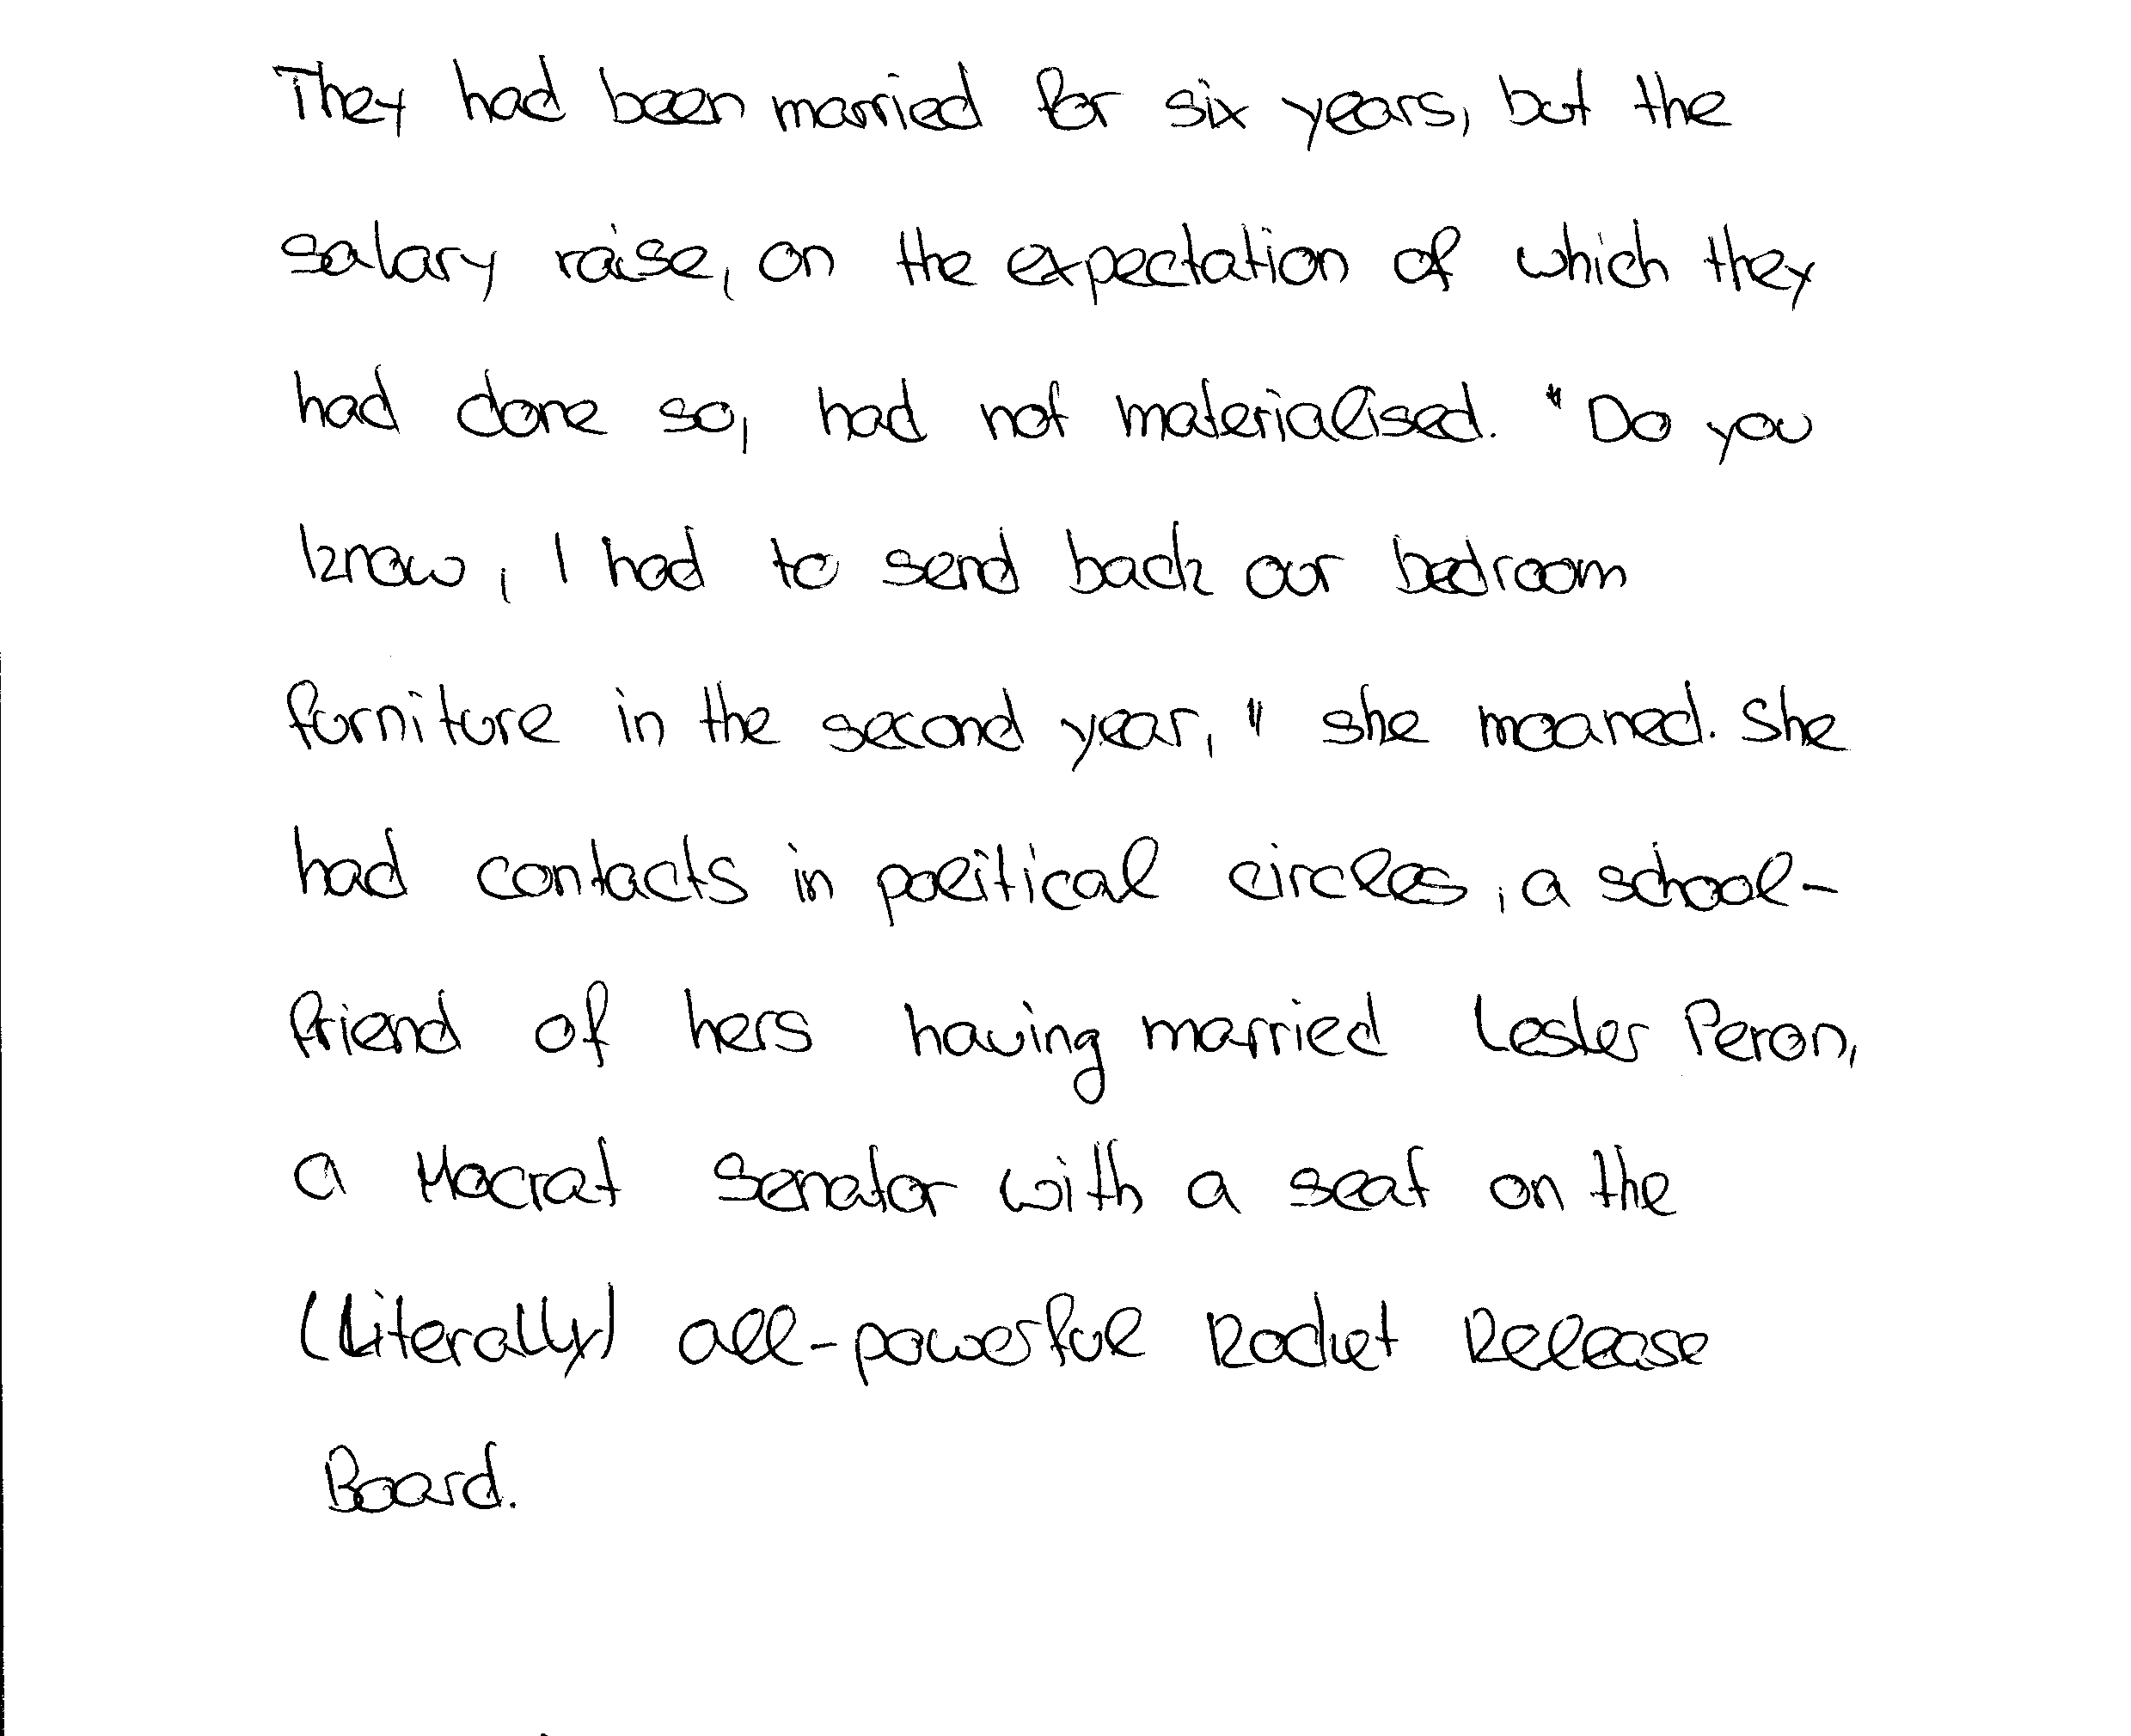 They had been married for six years, but the
salary raise, on the expectation of which they
had done so, had not materialised. "Do you
know, I had to send back our bedroom
furniture in the second year," she moaned. She
had contacts in political circles, a school-
friend of hers having married Lester Peron,
a Mocrat Senator with a seat on the
(literally) all-powerful Rocket Release
Board.